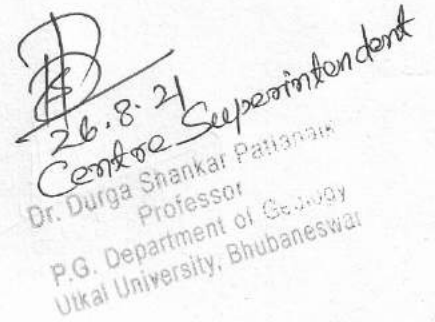 26.8.21
Centre Superintendent
Dr. Durga Shankar Pattanaik
Professor
P.G. Department of Geology
Utkal University, Bhubaneswar